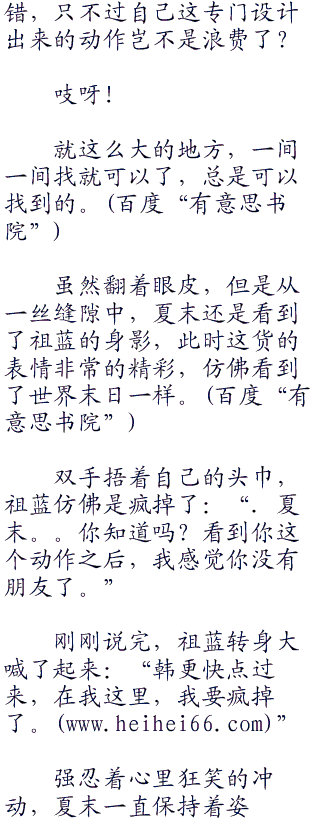 错，只不过自己这专门设计
出来的动作岂不是浪费了？
吱呀！
就这么大的地方，一间
一间找就可以了，总是可以
找到的。(百度“有意思书
院”)
虽然翻着眼皮，但是从
一丝缝隙中，夏末还是看到
了祖蓝的身影，此时这货的
表情非常的精彩，仿佛看到
了世界末日一样。(百度“有
意思书院”)
双手捂着自己的头巾，
祖蓝仿佛是疯掉了：“．夏
末。。你知道吗？看到你这
个动作之后，我感觉你没有
朋友了。”
刚刚说完，祖蓝转身大
喊了起来：“韩更快点过
来，在我这里，我要疯掉
了。(www.heihei66.com)”
强忍着心里狂笑的冲
动，夏末一直保持着姿